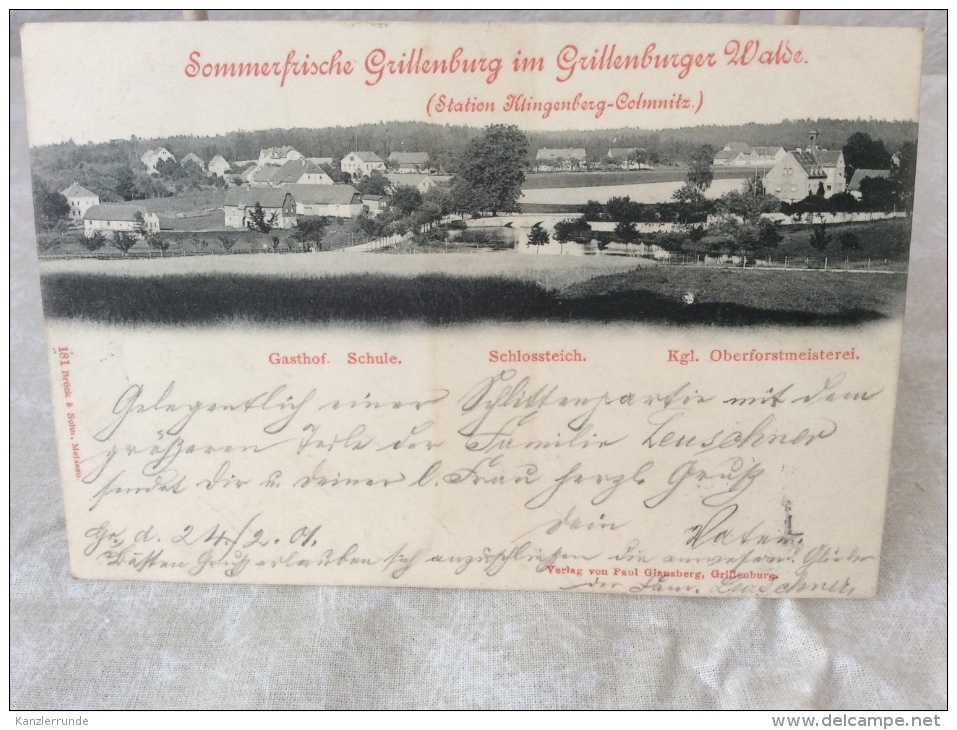 Sommerfrische Grillenburg im Grillenburger Walde.
(Station Klingenberg-Colmnitz.)
Gasthof. Schule. Schlossteich. Kgl. Oberforstmeisterei.
181 Brück & Sohn, Meissen.
Gelegentlich einer Schlittenpartie mit dem
größeren Teile der Familie Leuschner
sendet Dir u deiner l. Frau herzl. Gruß
dein Vater.
Gr. d. 24/2. 01.
Besten Gruß erlauben sich anzuschließen die anwesend. Glieder
Verlag von Paul Glansberg, Grillenburg.
der Fam. Leuschner,
Kanzlerrunde
http://www.delcampe.net